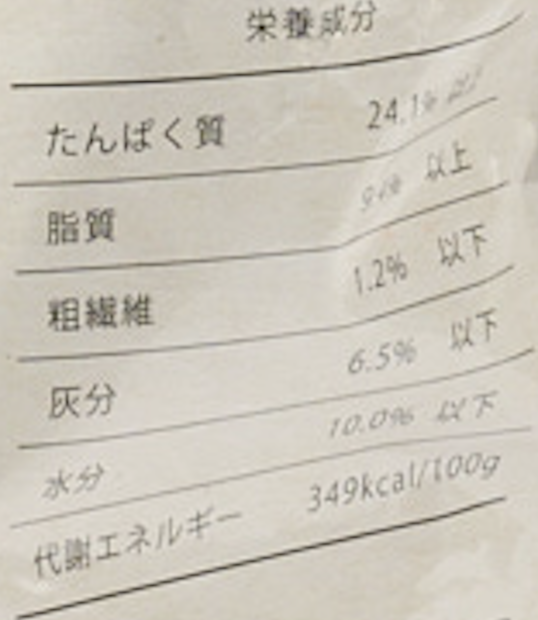 栄養成分
たんぱく質 24.1%
脂質 以上
粗繊維 1.2% 以下
灰分 6.5% 以下
水分 10.0% 以下
代謝エネルギー 349kcal/100g